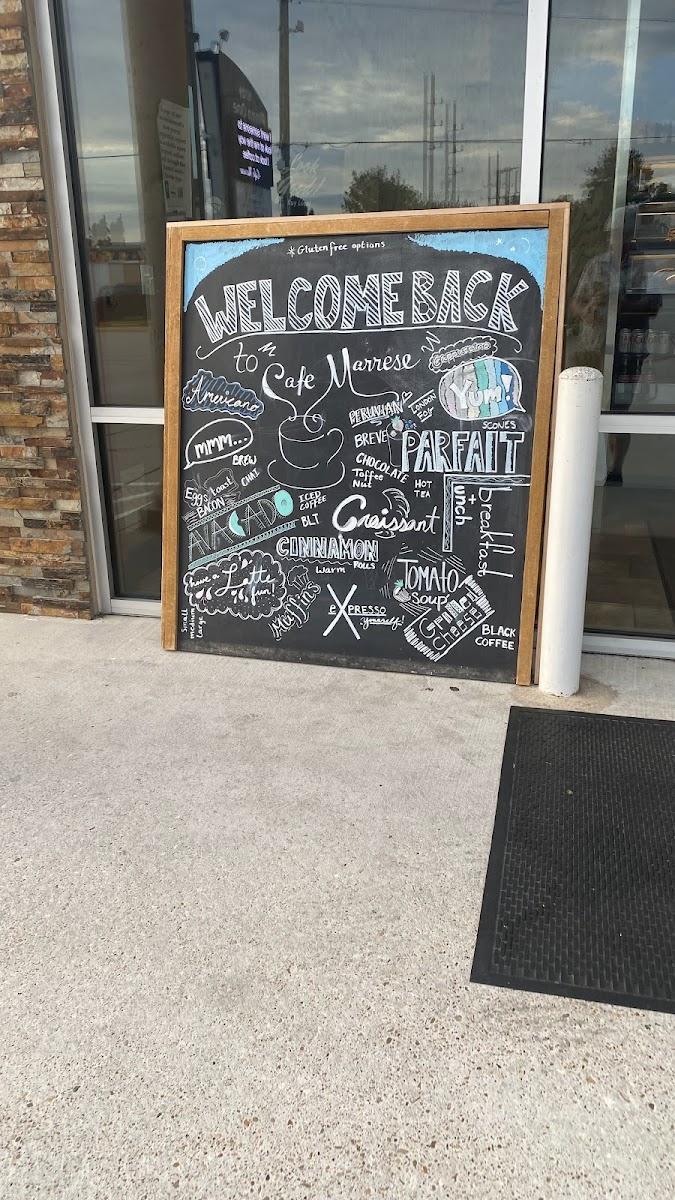 * Gluten free options
WELCOME BACK
to Cafe Marrese
Americano
Yum!
PERUVIAN
LONDON
FOG
SCONES
mmm...
BREW
CHAI
BREVE
PARFAIT
CHOCOLATE
Toffee
Nut
HOT
TEA
Eggs toast
BACON
AVACADO
ICED
COFFEE
BLT
Croissant
lunch
+
breakfast
CINNAMON
ROLLS
Warm
have a Latte
fun!
Muffins
eXPRESSO
yourself!
TOMATO
SOUP
GRILLED
CHEESE
BLACK
COFFEE
Small
medium
Large